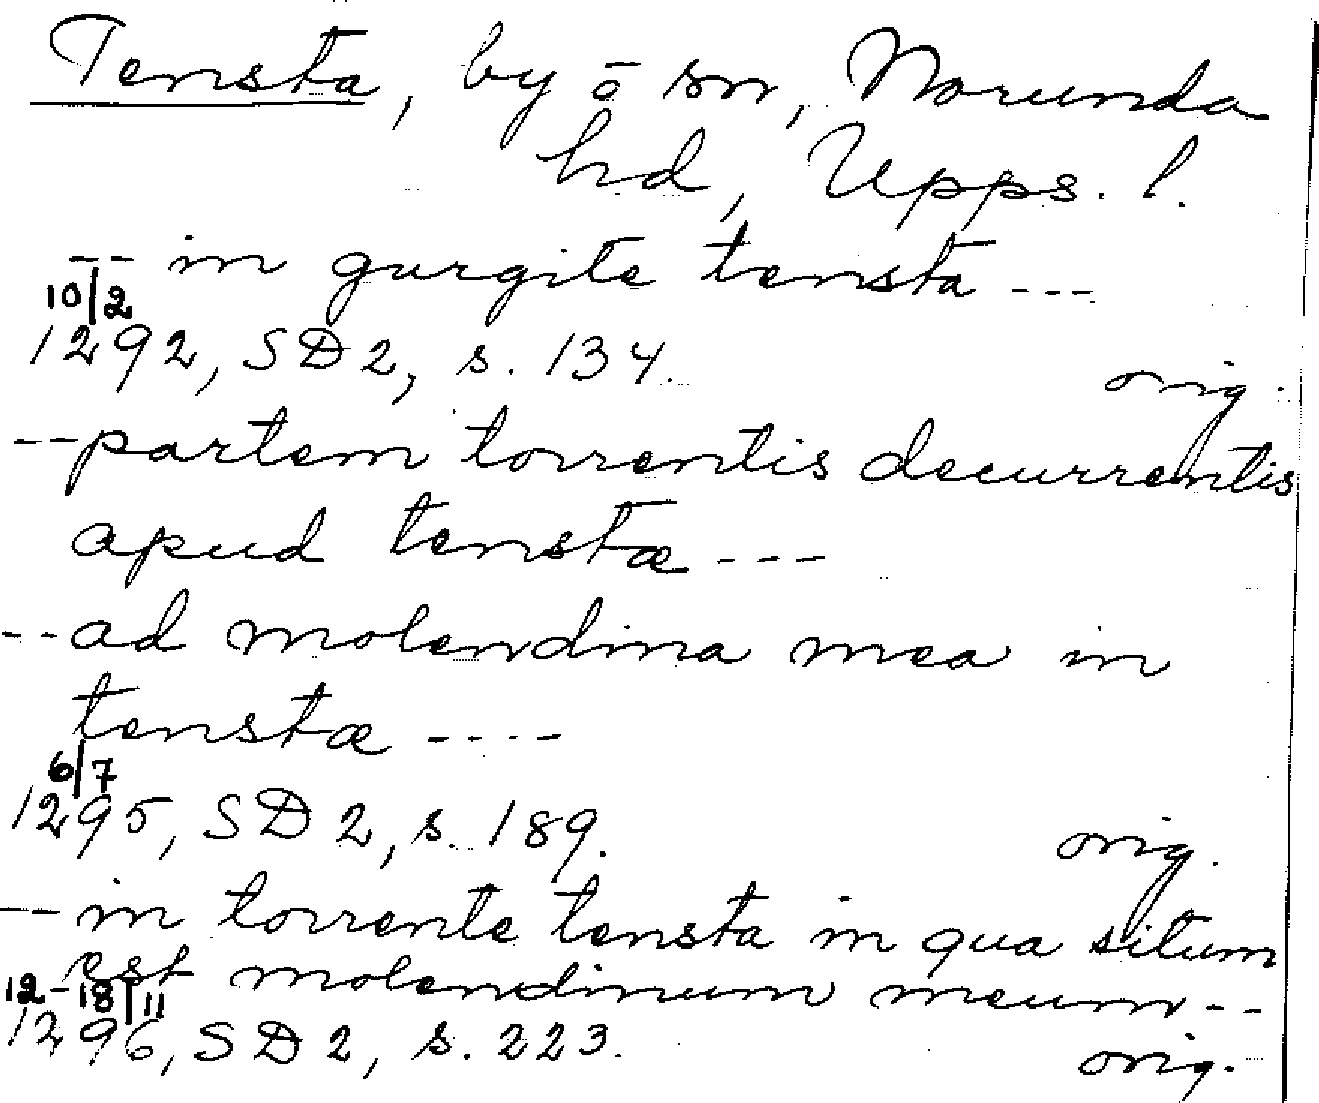 Tensta, by o sn, Norunda
hd, Upps. l.
-- in gurgite tensta ---
10/2
1292, SD 2, s. 134. orig.
-- partem torrentis decurrentis
apud tenstæ ---
-- ad molendina mea in
tenstæ ----
6/7
1295, SD 2, s. 189. orig.
-- in torrente tensta in qua situm
est molendinum meum --
12-18/11
1296, SD 2, s. 223. orig.